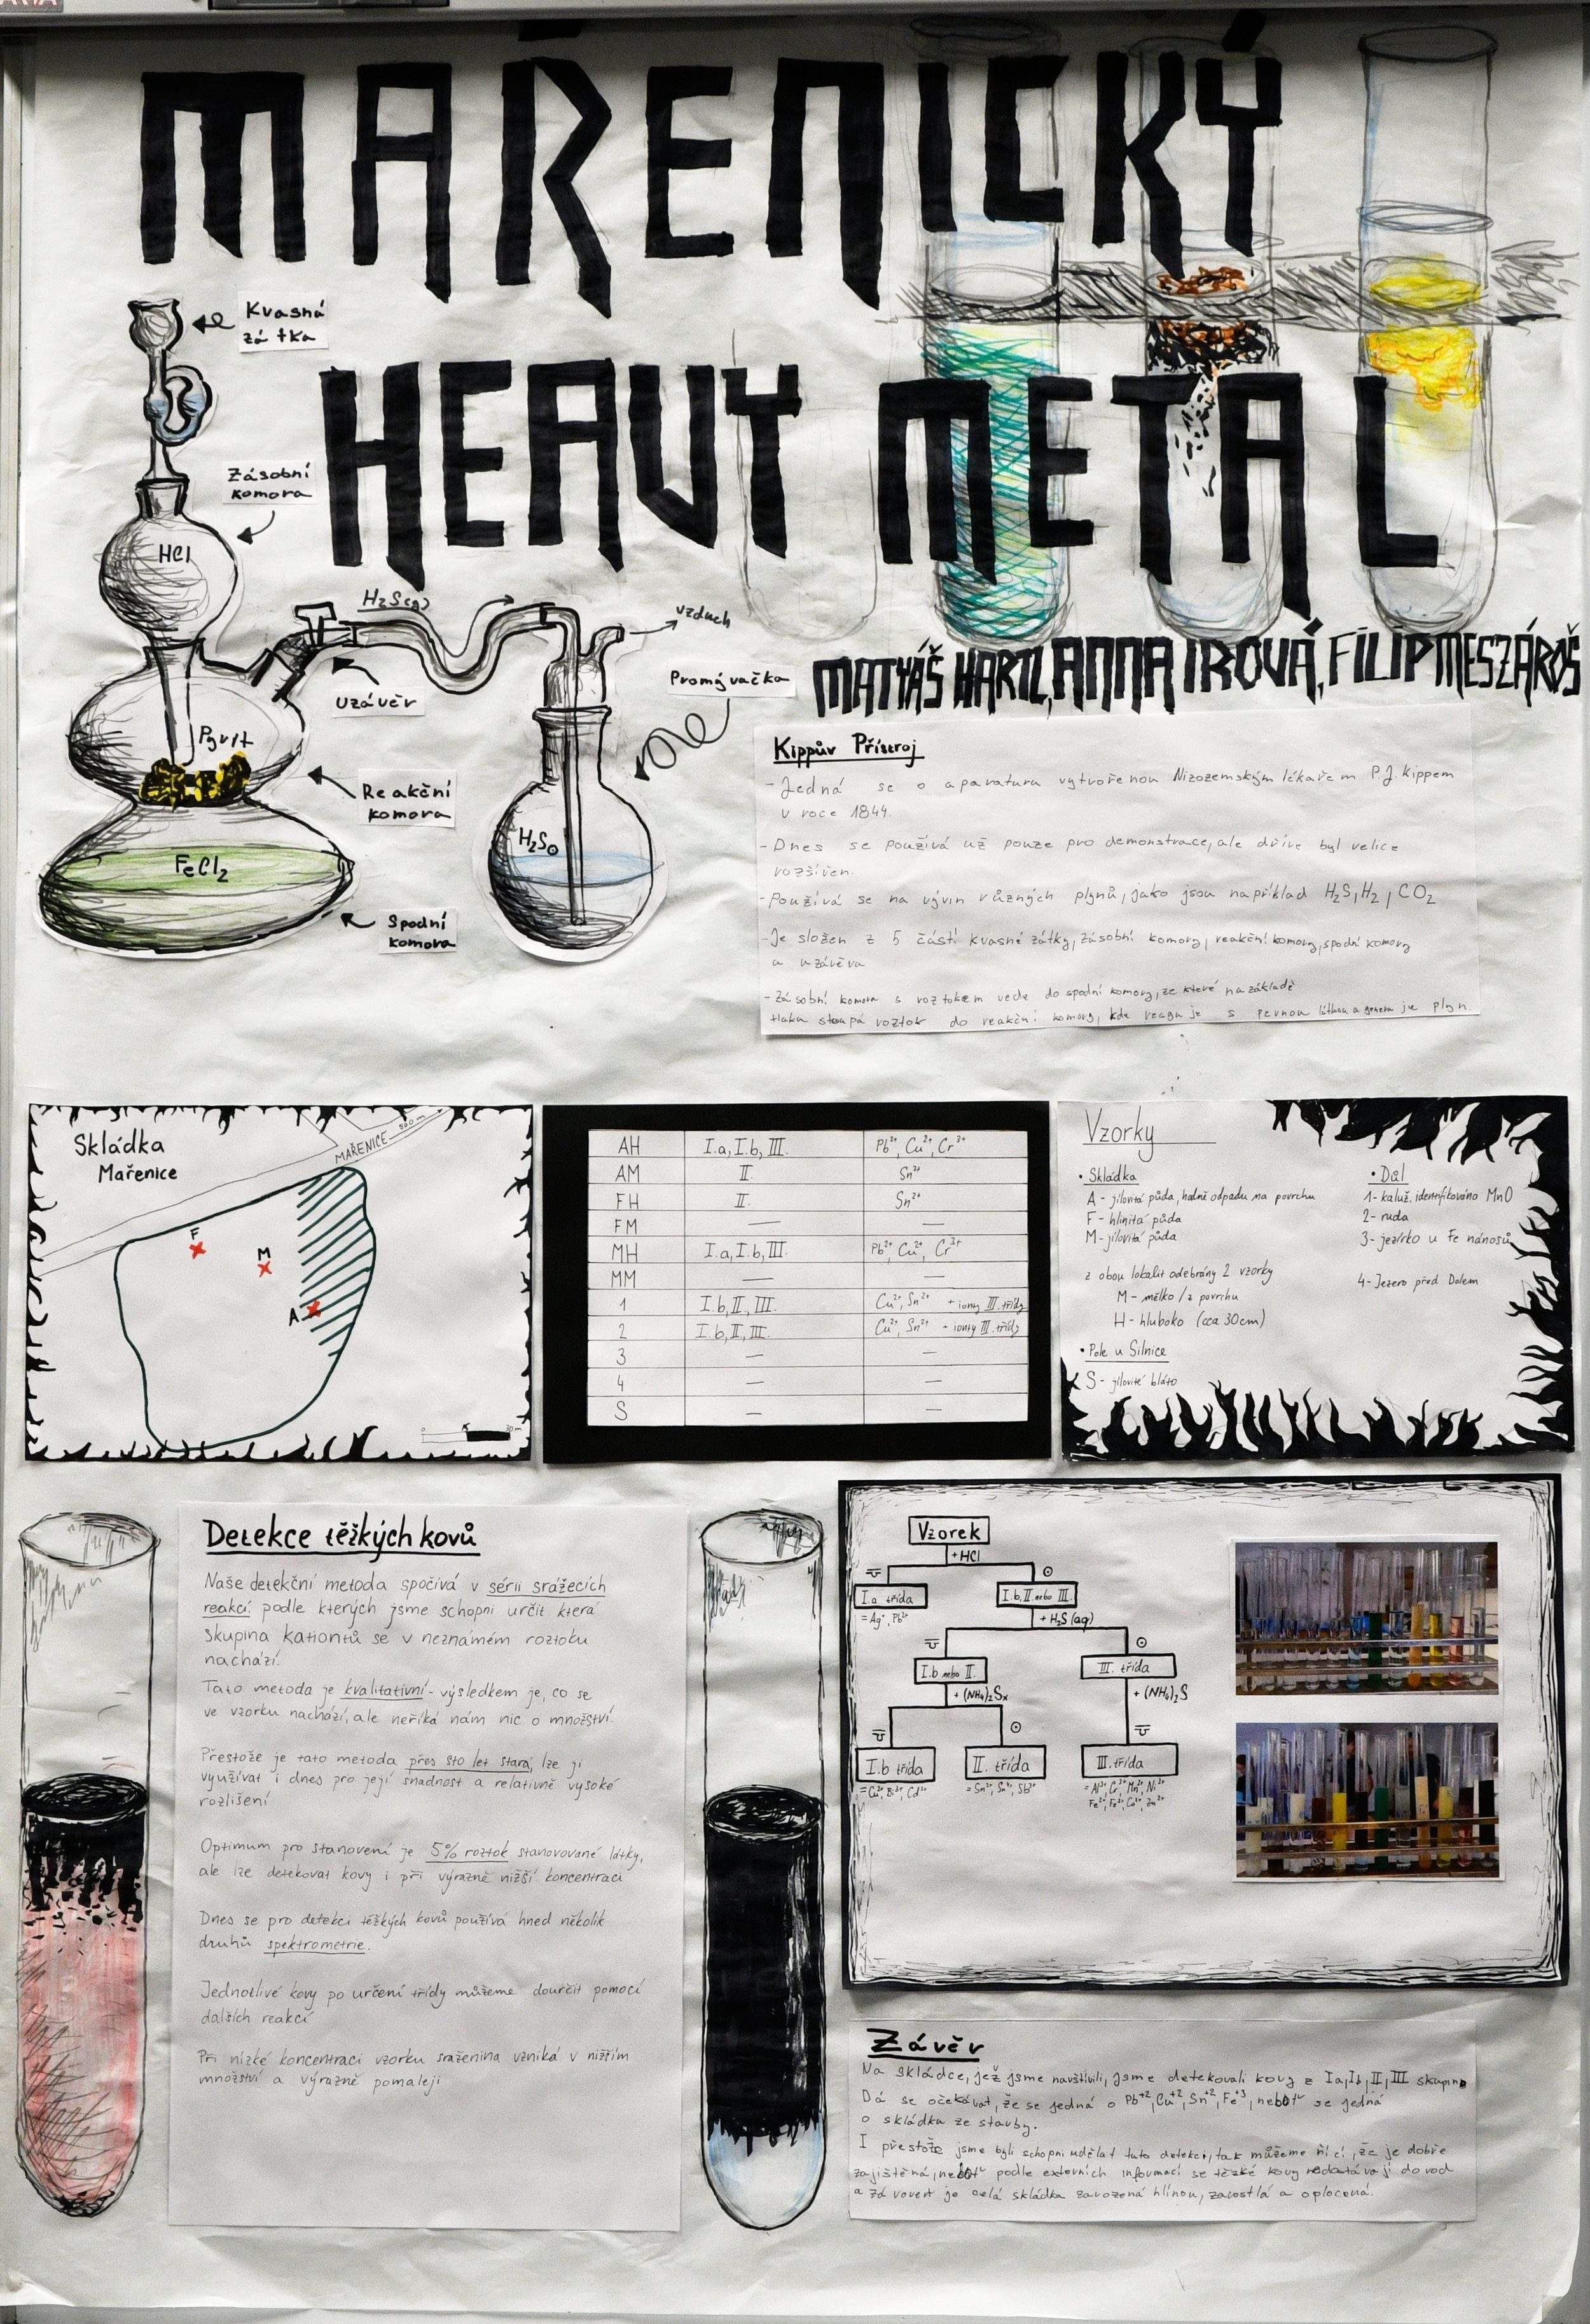 MAŘENICKÝ
HEAVY METAL
MATYÁŠ HARTL, ANNA IROVÁ, FILIP MESZÁROŠ
Kvasná
zátka
Zásobní
komora
HCl
H₂S(g)
vzduch
Uzávěr
Promývačka
Pyrit
Reakční
komora
H₂S
FeCl₂
Spodní
komora
Kippův Přístroj
- Jedná se o aparaturu vytvořenou Nizozemským lékařem P.J. Kippem
v roce 1844.
- Dnes se používá už pouze pro demonstrace, ale dříve byl velice
rozšířen.
- Používá se na vývin různých plynů, jako jsou například H₂S, H₂, CO₂
- Je složen z 5 částí kvasné zátky, zásobní komory, reakční komory, spodní komory
a uzávěra
- Zásobní komora s roztokem vede do spodní komory, ze které na základě
tlaku stoupá roztok do reakční komory, kde reaguje s pevnou látkou a generuje plyn.
Skládka
Mařenice
MAŘENICE 500 m
F
M
A
0 30 m
AH I.a, I.b, III. Pb²⁺, Cu²⁺, Cr³⁺
AM II. Sn²⁺
FH II. Sn²⁺
FM — —
MH I.a, I.b, III. Pb²⁺, Cu²⁺, Cr³⁺
MM — —
1 I.b, II, III. Cu²⁺, Sn²⁺ + ionty III. třídy
2 I.b, II, III. Cu²⁺, Sn²⁺ + ionty III. třídy
3 — —
4 — —
S — —
Vzorky
• Skládka
A - jílovitá půda, hodně odpadu na povrchu
F - hlinitá půda
M - jílovitá půda
z obou lokalit odebrány 2 vzorky
M - mělko / z povrchu
H - hluboko (cca 30cm)
• Pole u Silnice
S - jílovité bláto
• Důl
1 - kaluž, identifikováno MnO
2 - ruda
3 - jezírko u Fe nánosů
4 - Jezero před Dolem
Detekce těžkých kovů
Naše detekční metoda spočívá v sérii srážecích
reakcí podle kterých jsme schopni určit která
skupina kationtů se v neznámém roztoku
nachází.
Tato metoda je kvalitativní - výsledkem je, co se
ve vzorku nachází, ale neříká nám nic o množství.
Přestože je tato metoda přes sto let stará, lze ji
využívat i dnes pro její snadnost a relativně vysoké
rozlišení
Optimum pro stanovení je 5% roztok stanovované látky,
ale lze detekovat kovy i při výrazně nižší koncentraci
Dnes se pro detekci těžkých kovů používá hned několik
druhů spektrometrie.
Jednotlivé kovy po určení třídy můžeme dourčit pomocí
dalších reakcí
Při nízké koncentraci vzorku sraženina vzniká v nižším
množství a výrazně pomaleji
Vzorek
+ HCl
I.a třída
= Ag⁺, Pb²⁺
I.b, II. nebo III.
+ H₂S (aq)
I.b nebo II.
+ (NH₄)₂Sₓ
III. třída
+ (NH₄)₂S
I.b třída
= Cu²⁺, Bi³⁺, Cd²⁺
II. třída
= Sn²⁺, Sn⁴⁺, Sb³⁺
III. třída
= Al³⁺, Cr³⁺, Mn²⁺, Ni²⁺
Fe²⁺, Fe³⁺, Co²⁺, Zn²⁺
Závěr
Na skládce, jež jsme navštívili, jsme detekovali kovy z Ia, Ib, II, III skupiny
Dá se očekávat, že se jedná o Pb⁺², Cu⁺², Sn⁺², Fe⁺³, neboť se jedná
o skládku ze stavby.
I přestože jsme byli schopni udělat tuto detekci, tak můžeme říci, že je dobře
zajištěná, neboť podle externích informací se těžké kovy nedostávají do vod
a zároveň je celá skládka zavožená hlínou, zarostlá a oplocená.